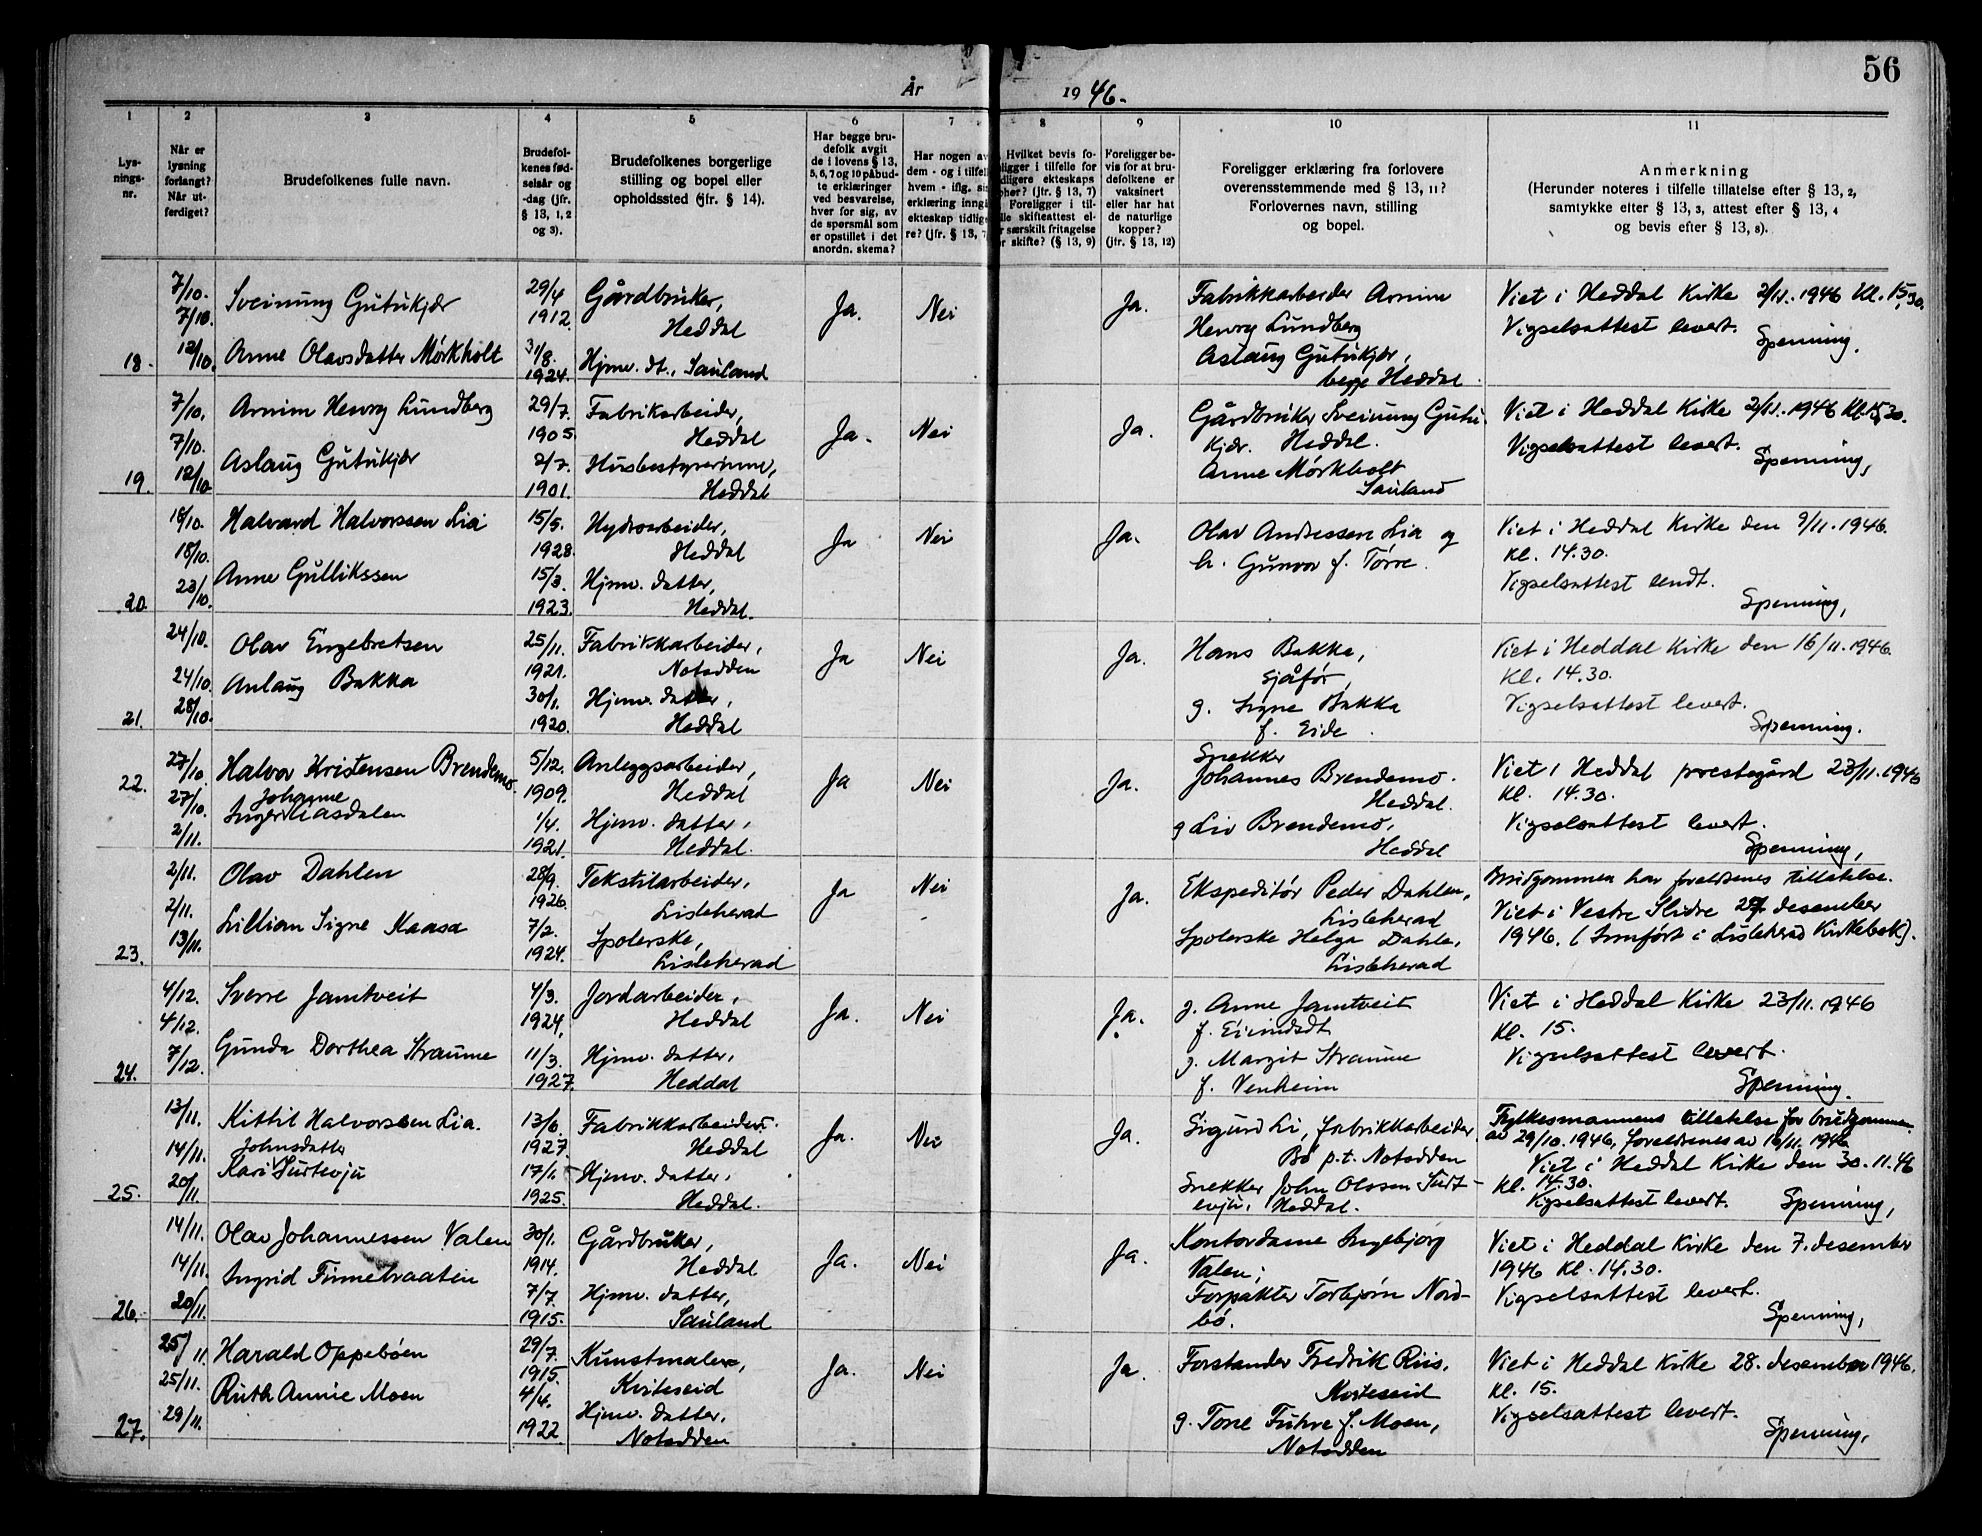 56
År 1946.
1 2 3 4 5 6 7 8 9 10 11
Lys-
nings-
nr.
Når er
lysning
forlangt?
Når ut-
ferdiget?
Brudefolkenes fulle navn.
Brudefol-
kenes fød-
selsår og
-dag (jfr.
§ 13, 1, 2
og 3).
Brudefolkenes borgerlige
stilling og bopel eller
opholdssted (jfr. § 14).
Har begge bru-
defolk avgit
de i lovens § 13,
5, 6, 7 og 10 påbud-
te erklæringer
ved besvarelse,
hver for sig, av
de spørsmål som
er opstillet i det
anordn. skema?
Har nogen av
dem - og i tilfelle
hvem - iflg. sin
erklæring inngå
ekteskap tidlige
re? (jfr. § 13, 7
Hvilket bevis fo-
ligger i tilfelle for
dligere ekteskaps
pher? (jfr. § 13, 7)
Foreligger i til-
lle skifteattest el-
r særskilt fritagelse
r skifte? (§ 13, 9)
Foreligger be-
vis for at bru-
defolkene er
vaksinert
eller har hat
de naturlige
kopper?
(jfr. § 13, 12)
Foreligger erklæring fra forlovere
overensstemmende med § 13, 11?
Forlovernes navn, stilling
og bopel.
Anmerkning
(Herunder noteres i tilfelle tillatelse efter § 13, 2,
samtykke efter § 13, 3, attest efter § 13, 4
og bevis efter § 13, 8).
18.
7/10.
7/10.
12/10.
Sveinung Gutukjær
Anne Olavsdatter Mørkholt
29/4
1912.
31/8.
1924.
Gårdbruker,
Heddal
Hjmv. dt., Sauland
Ja.
Nei
Ja.
Fabrikkarbeider Arnim
Henry Lundberg
Aslaug Gutukjær,
begge Heddal.
Viet i Heddal Kirke 2/11.1946 Kl. 15,30.
Vigselsattest levert.
Spenning.
19.
7/10.
7/10.
12/10
Arnim Henry Lundberg
Aslaug Gutukjær
29/7.
1905.
2/7.
1901.
Fabrikarbeider,
Heddal
Husbestyrerinne,
Heddal
Ja.
Nei
Ja.
Gårdbruker Sveinung Gutu-
kjær. Heddal.
Anne Mørkholt
Sauland
Viet i Heddal Kirke 2/11.1946 Kl. 15,30.
Vigselsattest levert.
Spenning,
20.
18/10.
18/10.
23/10.
Halvard Halvorssen Lia
Anne Gullikssen
15/5.
1928.
15/3.
1923.
Hydroarbeider,
Heddal
Hjmv. datter,
Heddal.
Ja
Nei
Ja.
Olav Andressen Lia og
h. Gunvor f. Tørre.
Viet i Heddal Kirke den 9/11.1946.
Kl. 14.30.
Vigselsattest sendt.
Spenning,
21.
24/10.
24/10.
28/10.
Olav Engebretsen
Anlaug Bakka
25/11.
1921.
30/1.
1920.
Fabrikkarbeider,
Notodden
Hjmv. datter,
Heddal
Ja
Nei
Ja.
Hans Bakka,
sjåfør,
g. Signe Bakka
f. Eide.
Viet i Heddal Kirke den 16/11.1946.
Kl. 14.30.
Vigselsattest levert.
Spenning.
22.
27/10.
27/10.
2/11.
Halvor Kristensen Brendemo.
Johanne
Inger Aasdalen
5/12.
1909.
1/4.
1921.
Anleggsarbeider,
Heddal
Hjmv. datter,
Heddal.
Ja
Nei
Ja.
Snekker
Johannes Brendemo.
Heddal.
g Liv Brendemo,
Heddal
Viet i Heddal prestegård 23/11.1946
Kl. 14.30.
Vigselsattest levert.
Spenning,
23.
2/11.
2/11.
13/11.
Olav Dahlen
Lillian Signe Kaasa
28/9.
1926.
7/2.
1924.
Tekstilarbeider,
Lisleherad
Spolerske,
Lisleherad
Ja
Nei
Ja.
Ekspeditør Peder Dahlen,
Lisleherad
Spolerske Helga Dahle,
Lisleherad
Brudgommen har foreldrenes tillatelse.
Viet i Vestre Slidre 27. desember
1946. (Innført i Lisleherad Kirkebok).
24.
4/12.
4/12.
7/12.
Sverre Jamtveit
Gunda Dorthea Straume
4/3.
1924.
11/3.
1927.
Jordarbeider,
Heddal
Hjmv. datter,
Heddal
Ja.
Nei
Ja.
g. Anne Jamtveit
f.
g. Margit Straume
f. Venheim
Viet i Heddal Kirke 23/11.1946
Kl. 15.
Vigselsattest levert.
Spenning.
25.
13/11.
14/11.
20/11.
Kittil Halvorssen Lia.
Johnsdatter
Kari Surtevju
13/6.
1927.
17/1.
1925.
Fabrikkarbeider.
Heddal
Hjmv. datter,
Heddal.
Ja.
Nei
Ja.
Sigurd Li, fabrikkarbeider
Bø p.t. Notodden
Snekker John Olssen Surt-
evju, Heddal.
Fylkesmannens tillatelse for brudgommen
av 29/10.1946, foreldrenes av 10/11.1946
Viet i Heddal Kirke den 30.11.46
Kl. 14.30.
Vigselsattest levert.
Spenning,
26.
14/11.
14/11.
20/11.
Olav Johannessen Valen
Ingrid Finnebraaten
30/1.
1914.
7/7.
1915.
Gårdbruker,
Heddal
Hjmv. datter,
Sauland
Ja.
Nei
Ja.
Kontordame Ingebjørg
Valen;
Forpakter Torbjørn Nord-
bø.
Viet i Heddal Kirke den 7. desember
1946 Kl. 14.30.
Vigselsattest levert.
Spenning,
27.
25/11.
25/11.
29/11.
Harald Oppebøen
Ruth Annie Moen
29/7.
1915.
4/4.
1922.
Kunstmaler,
Kviteseid
Hjmv. datter,
Notodden
Ja.
Nei
Ja.
Forstander Fredrik Riis.
Kviteseid
g. Tone Fuhre f. Moen,
Notodden
Viet i Heddal Kirke 28. desember 1946.
Kl. 15.
Vigselsattest levert.
Spenning,